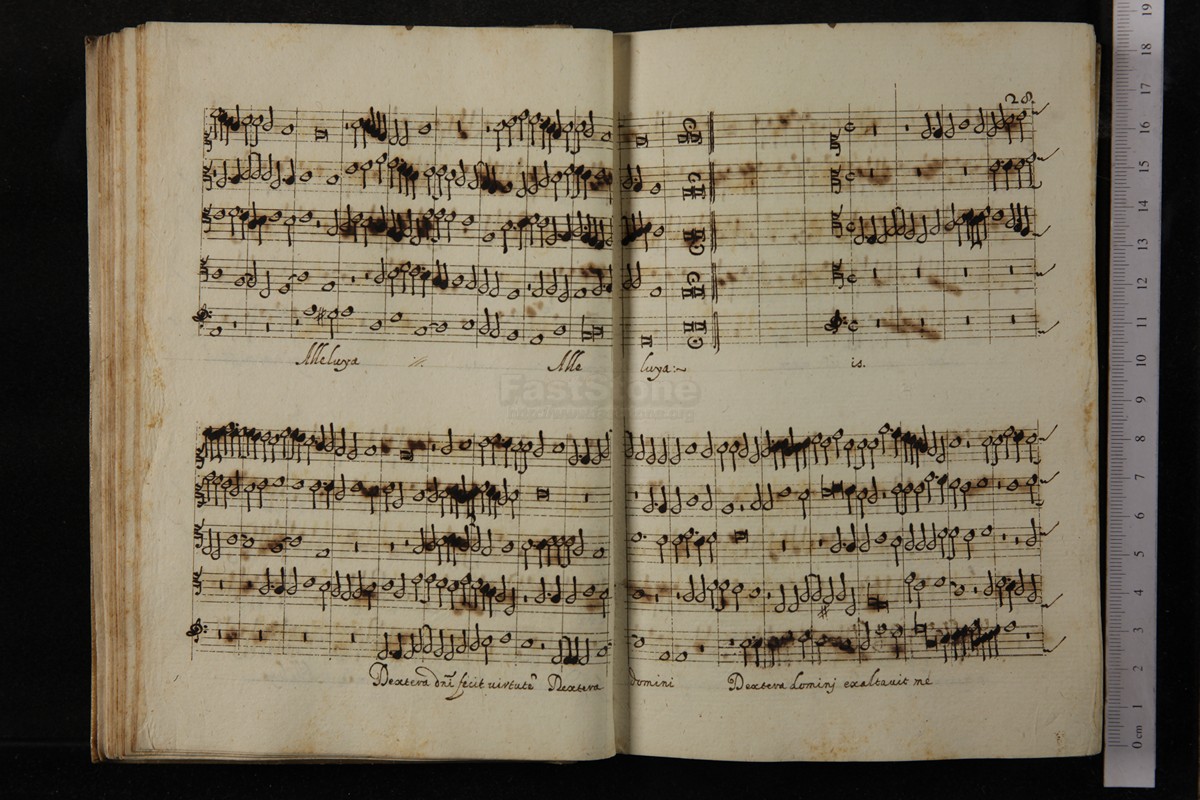 28.
Alleluya Alle luya:~ is.
FastStone
Dextera dñi fecit uirtutẽ Dextera Domini Dextera Dominj exaltauit me
0 cm 1 2 3 4 5 6 7 8 9 10 11 12 13 14 15 16 17 18 19